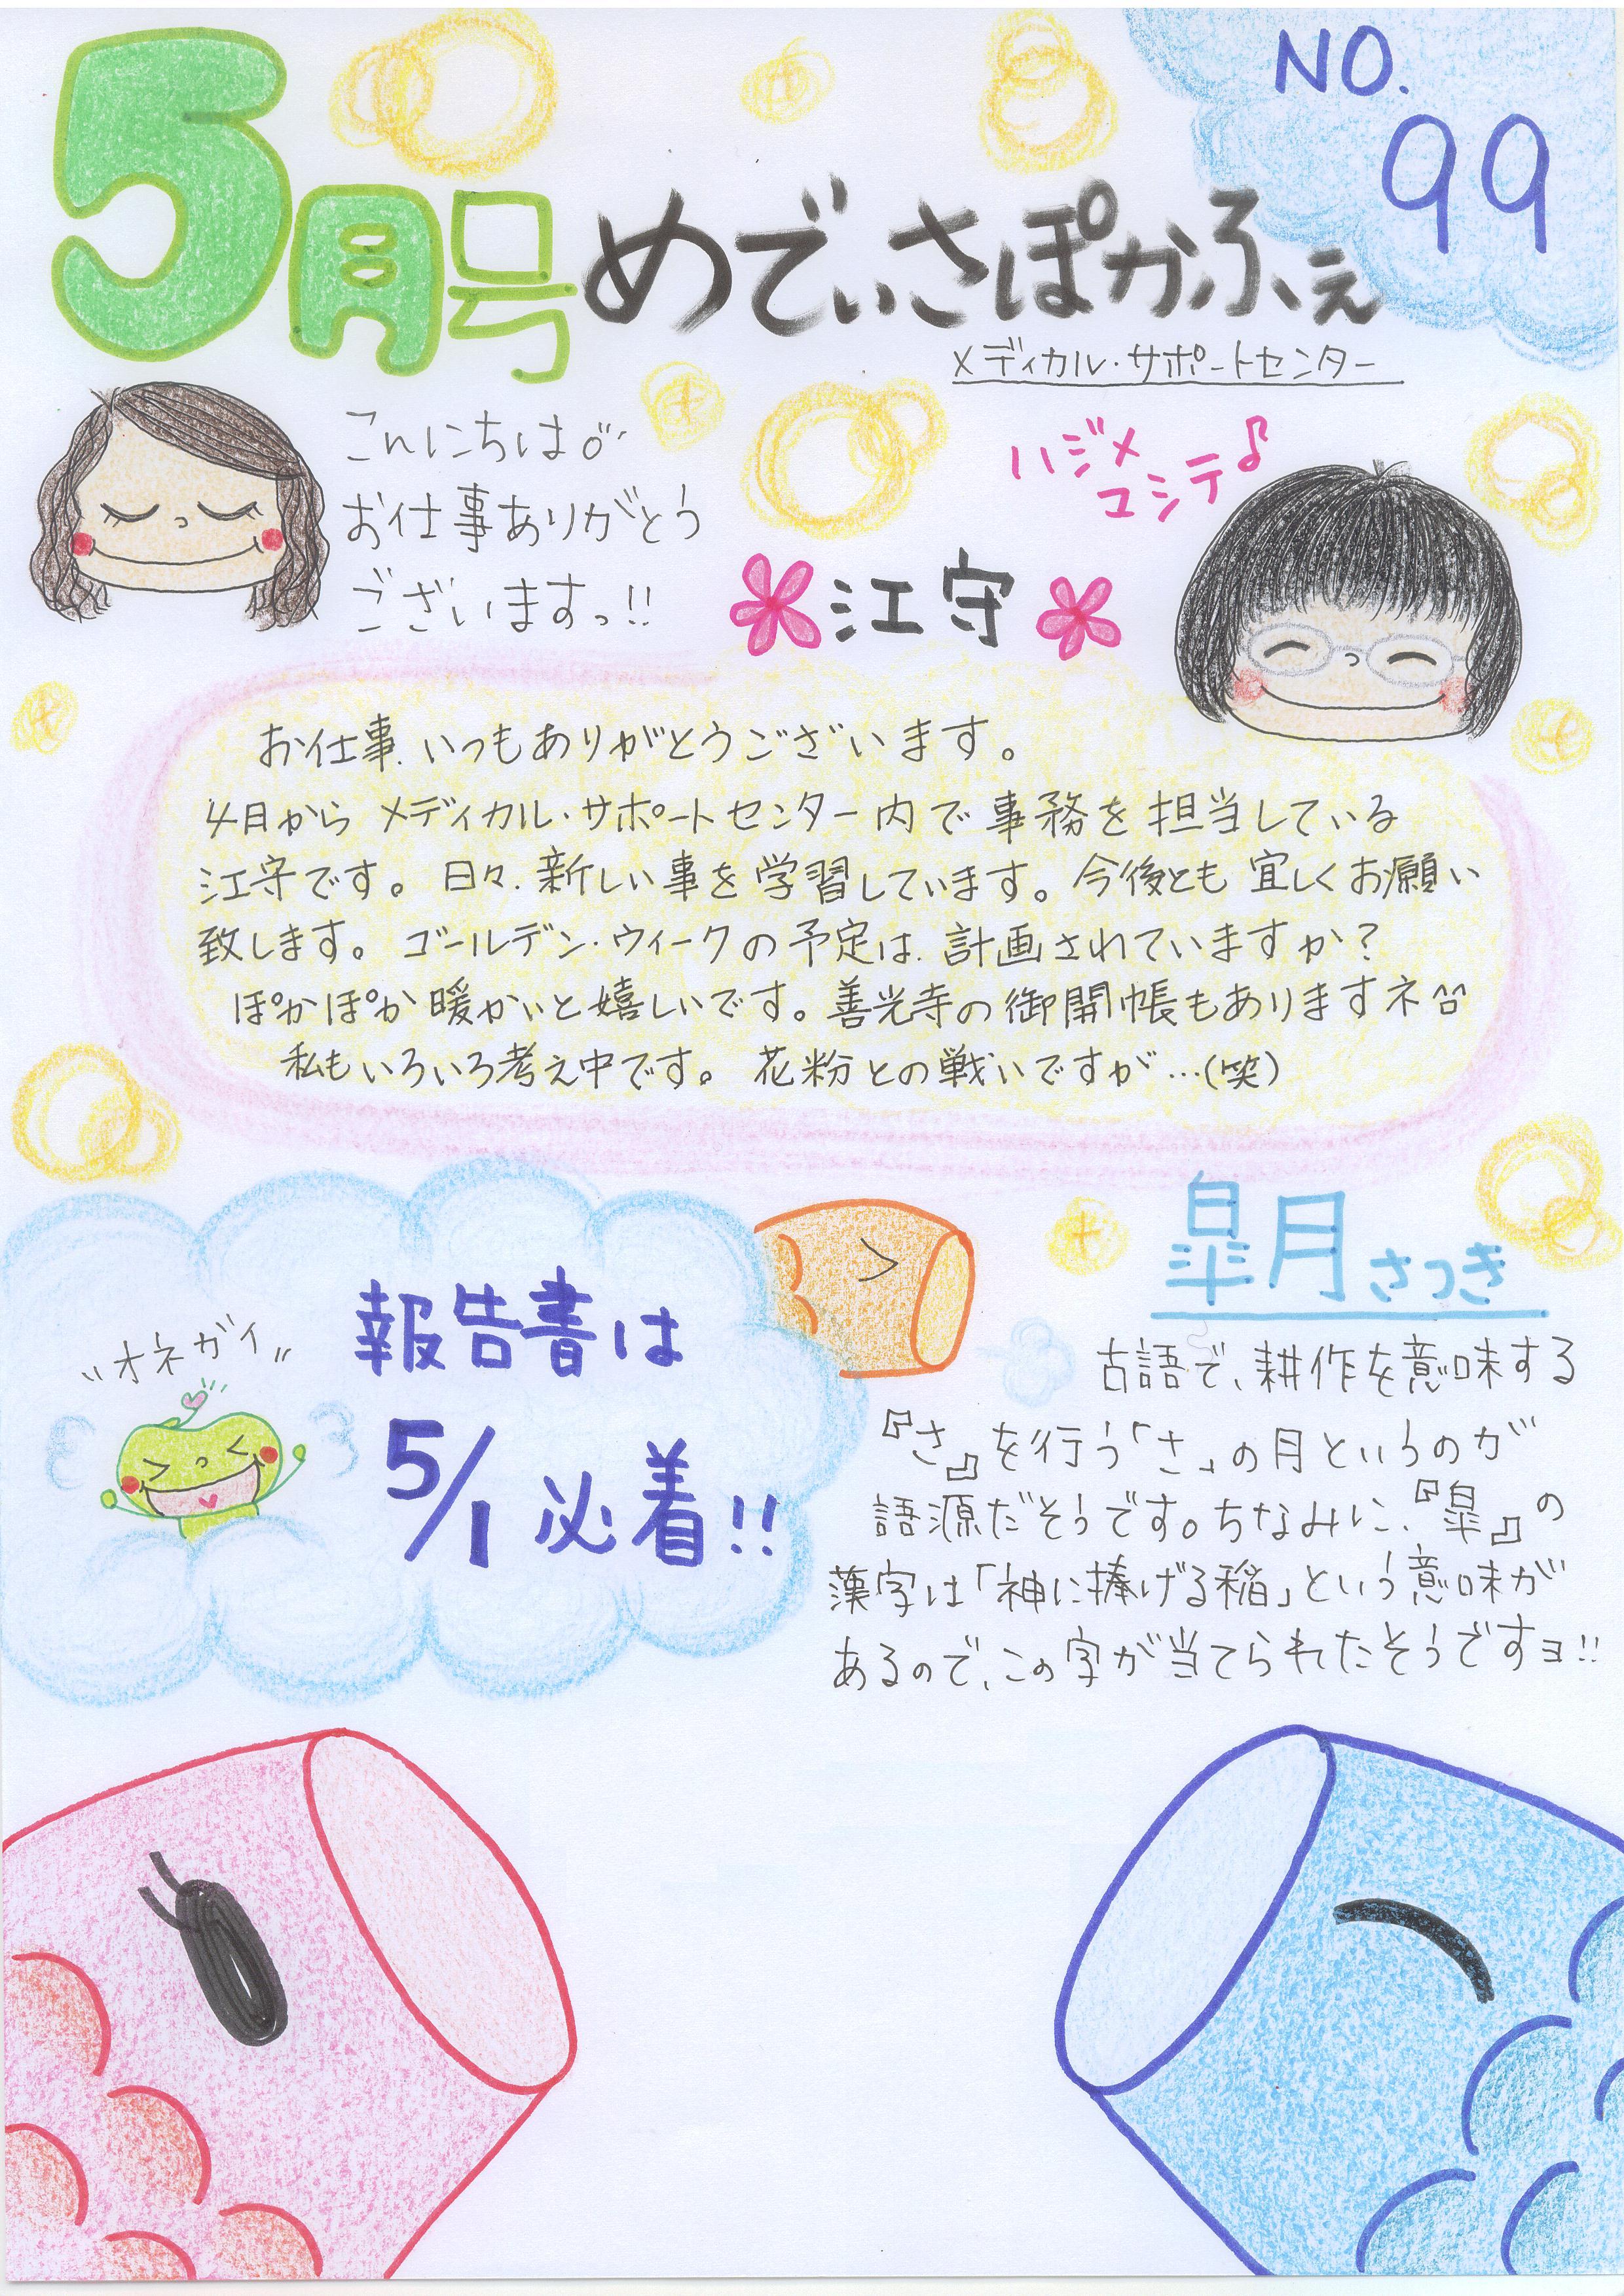 NO.
99
5月号 めでぃさぽかふぇ
メディカル・サポートセンター
こんにちは
お仕事ありがとう
ございますっ!!
ハジメ
マシテ♪
江守
お仕事、いつもありがとうございます。
4月から メディカル・サポートセンター内で事務を担当している
江守です。日々、新しい事を学習しています。今後とも宜しくお願い
致します。ゴールデン・ウィークの予定は、計画されていますか?
ぽかぽか暖かいと嬉しいです。善光寺の御開帳もありますネ^o^
私もいろいろ考え中です。花粉との戦いですが…(笑)
皐月さつき
古語で、耕作を意味する
『さ』を行う「さ」の月というのが
語源だそうです。ちなみに、『皐』の
漢字は「神に捧げる稲」という意味が
あるので、この字が当てられたそうですヨ!!
"オネガイ"
報告書は
5/1 必着!!